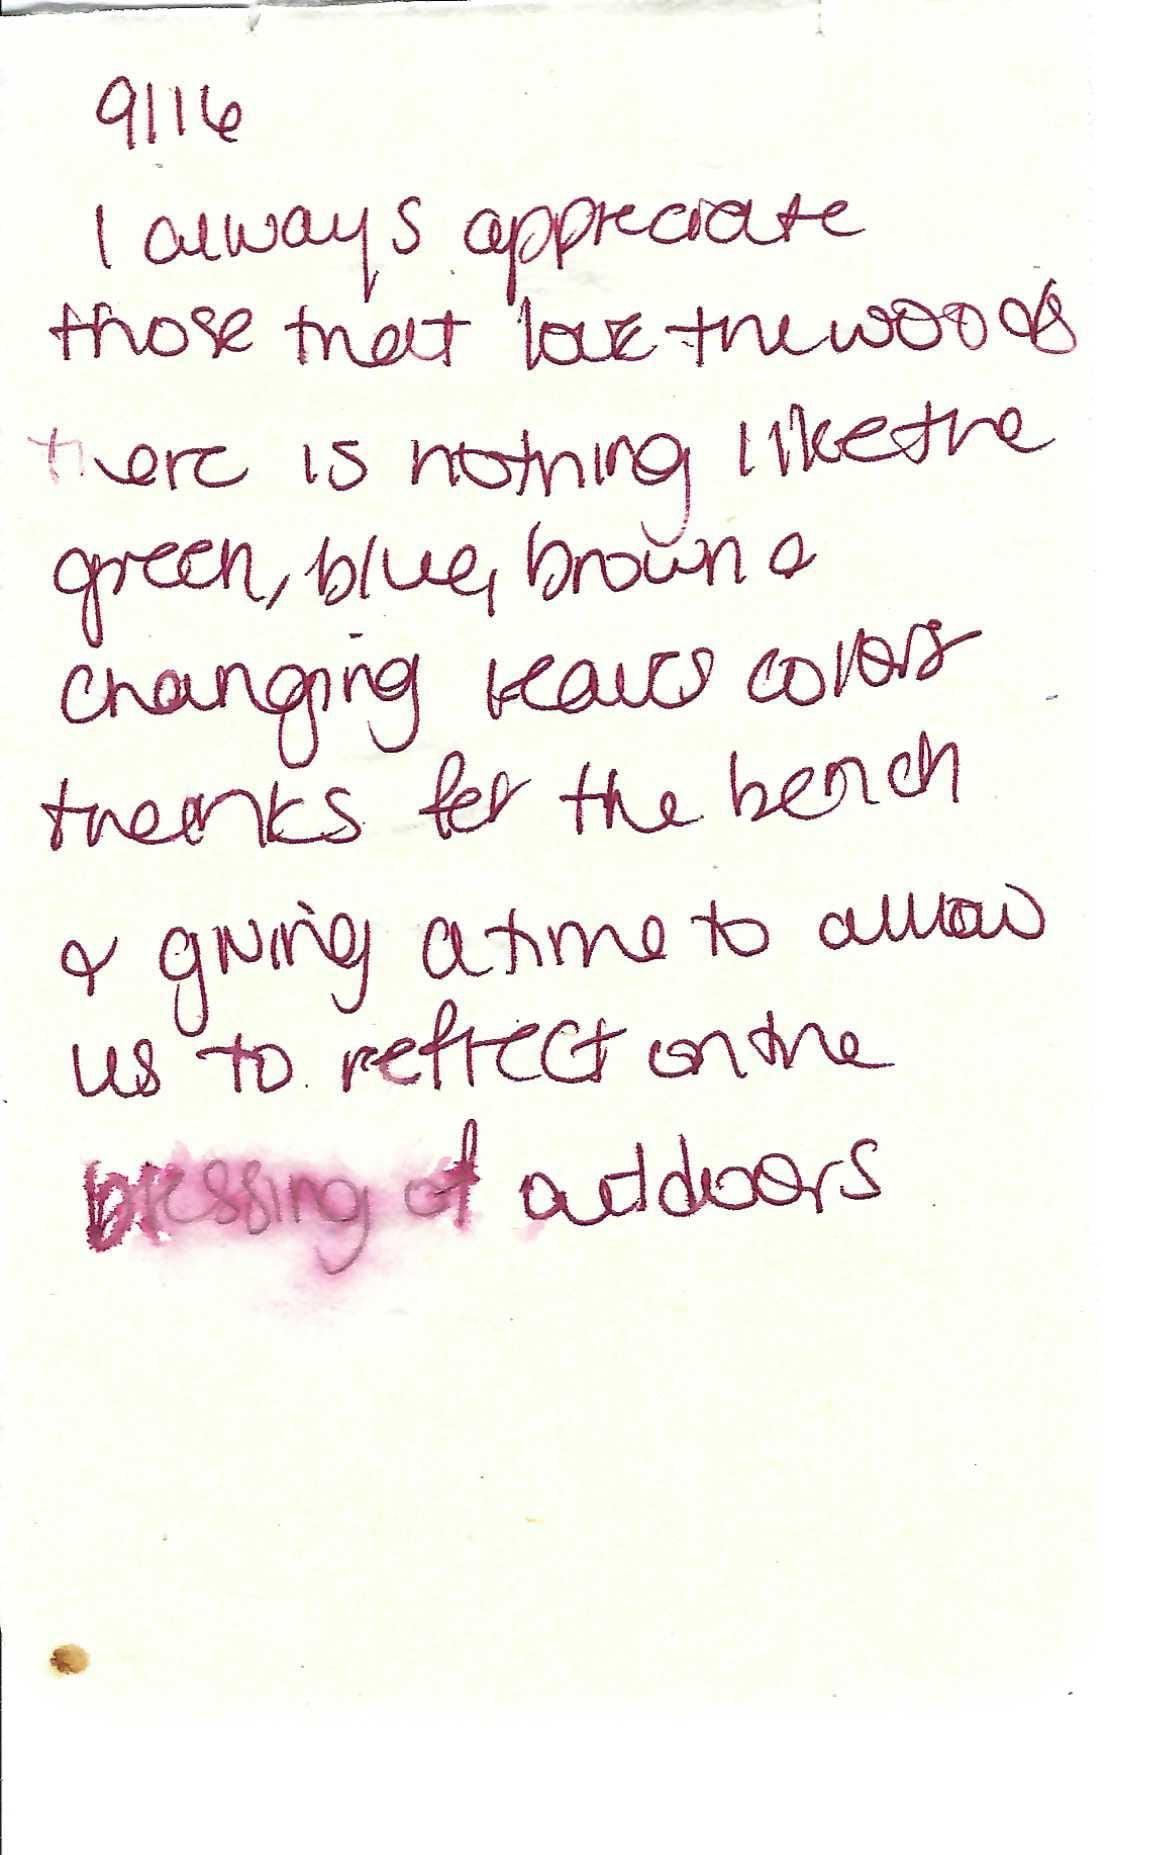 9/16
I always appreciate
those that love the woods
there is nothing like the
green, blue, brown &
changing leaves colors
thanks for the bench
& giving a time to allow
us to reflect on the
blessing of outdoors